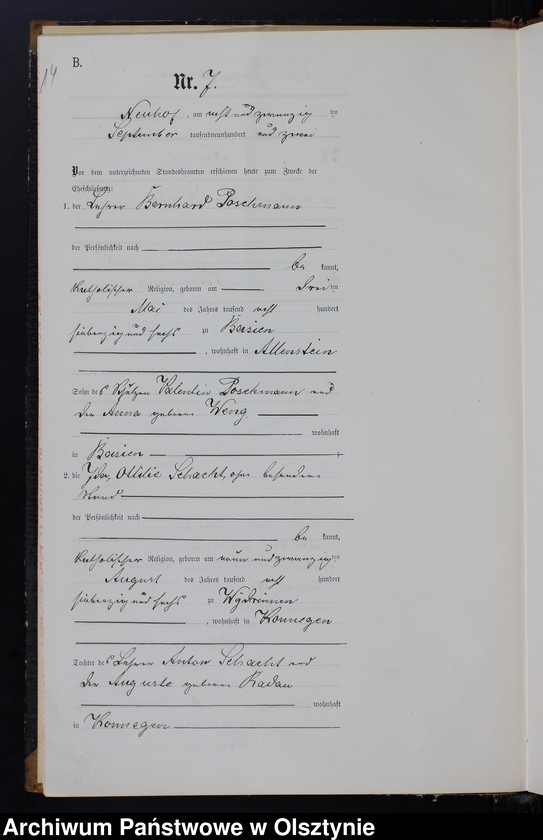 14
B.
Nr. 7.
Neuhof, am acht und zwanzig ten
September tausendneunhundert und zwei
Vor dem unterzeichneten Standesbeamten erschienen heute zum Zwecke der
Eheschließung:
1. der Lehrer Bernhard Poschmann
der Persönlichkeit nach
be kannt,
katholischer Religion, geboren am drei ten
Mai des Jahres tausend acht hundert
siebenzig und sechs zu Basien
, wohnhaft in Allenstein
Sohn des Schulzen Valentin Poschmann und
der Anna geborene Weng
wohnhaft
in Basien
2. die Ida, Ottilie Schacht, ohne besonderen
Stand
der Persönlichkeit nach
be kannt,
katholischer Religion, geboren am neun und zwanzig ten
August des Jahres tausend acht hundert
siebenzig und sechs zu Wydrinnen
, wohnhaft in Konnegen
Tochter des Lehrer Anton Schacht und
der Auguste geborene Radau
wohnhaft
in Konnegen
Archiwum Państwowe w Olsztynie